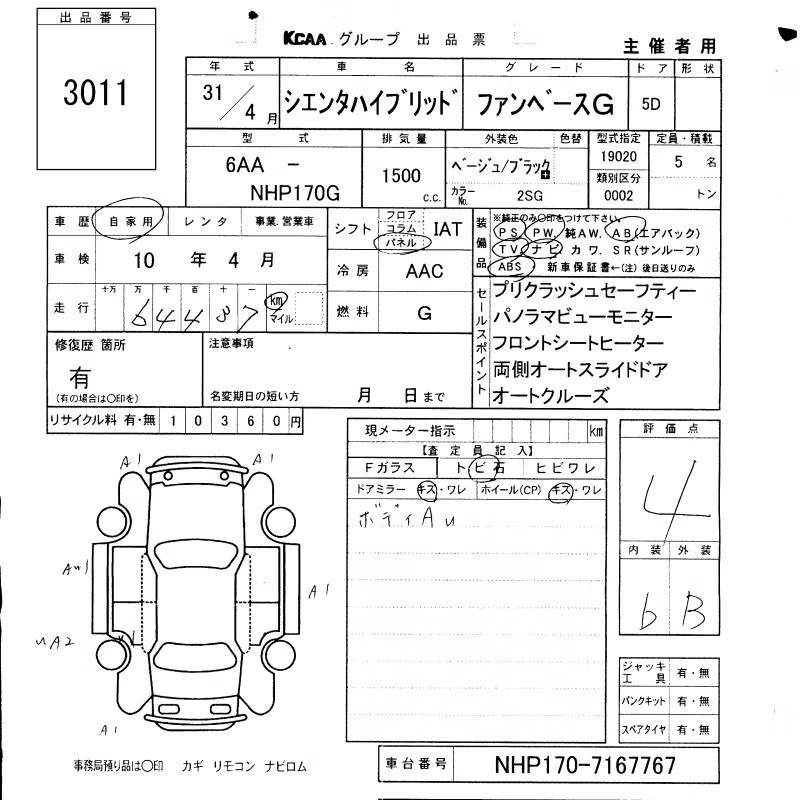 出品番号
3011
KCAA グループ 出品票
主催者用
年式 車名 グレード ドア 形状
31/4月 シエンタハイブリッド ファンベースG 5D
型式 排気量 外装色 色替 型式指定 定員・積載
6AA - NHP170G 1500 c.c. ベージュ/ブラック 19020 5 名
カラーNo. 2SG 類別区分 0002 トン
車歴 自家用 レンタ 事業.営業車
車検 10 年 4 月
走行 十万 万 千 百 十 一 km マイル
64487
シフト フロア コラム パネル IAT
冷房 AAC
燃料 G
装備品 ※純正のみ〇印をつけて下さい。
PS PW. 純AW. AB(エアバック)
TV ナビ カワ. SR(サンルーフ)
ABS 新車保証書←(注)後日送りのみ
セールスポイント
プリクラッシュセーフティー
パノラマビューモニター
フロントシートヒーター
両側オートスライドドア
オートクルーズ
修復歴 箇所
有
(有の場合は〇印を)
注意事項
名変期日の短い方 月 日まで
リサイクル料 有・無 10360円
現メーター指示 km
【査定員記入】
Fガラス トビ石 ヒビワレ
ドアミラー キズ・ワレ ホイール(CP) キズ・ワレ
ボディAu
評価点
4
内装 外装
6 B
A1 A1
Aw1
A1
A2
A1
ジャッキ工具 有・無
パンクキット 有・無
スペアタイヤ 有・無
事務局預り品は〇印 カギ リモコン ナビロム
車台番号 NHP170-7167767